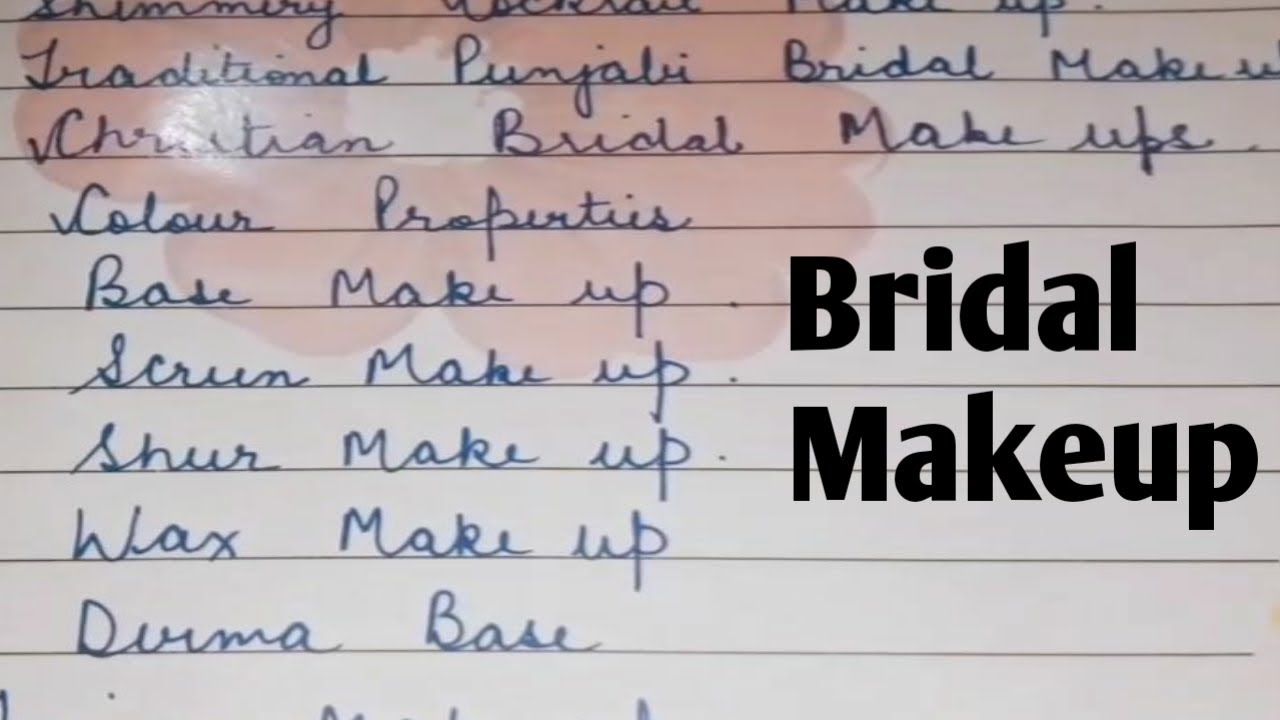 Shimmery Cocktail Make up.
Traditional Punjabi Bridal Make u
Christian Bridal Make ups.
Colour Properties
Base Make up.
Screen Make up.
Sheer Make up.
Wax Make up
Derma Base
Make
Bridal
Makeup